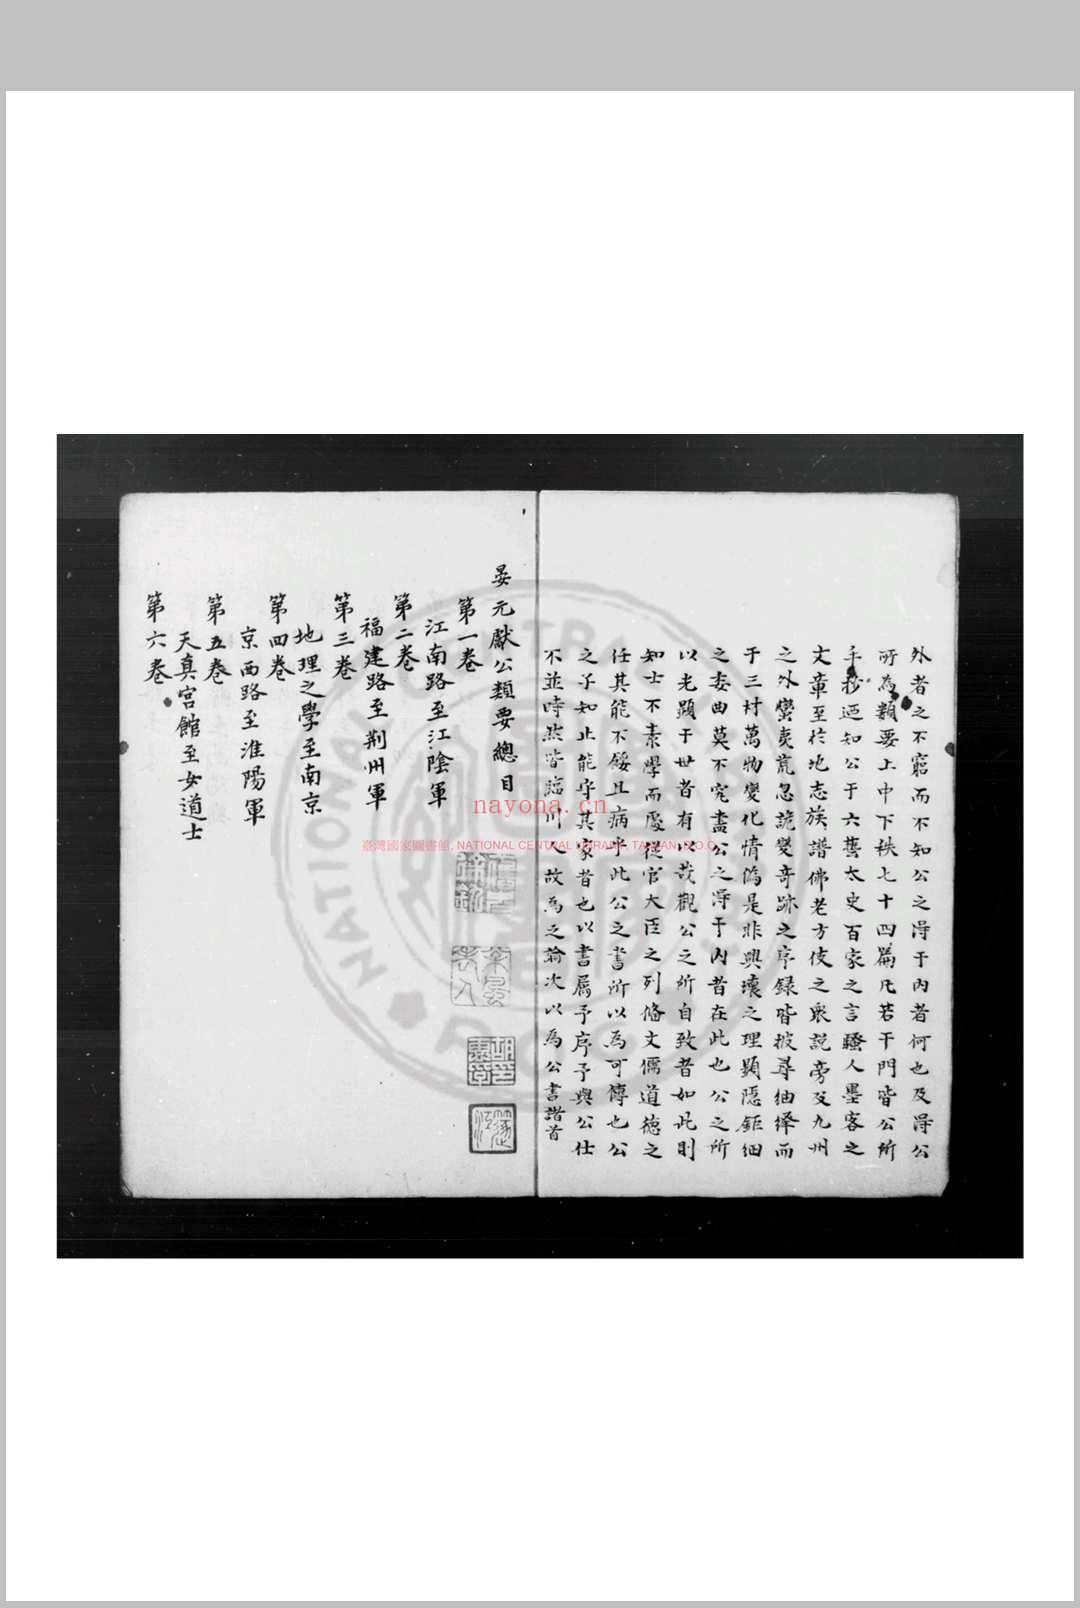 外者之不窮而不知公之得于內者何也及得公
所為類要上中下秩七十四篇凡若干門皆公所
手抄迺知公于六藝太史百家之言騷人墨客之
文章至於地志族譜佛老方伎之眾說旁及九州
之外蠻夷荒忽詭變奇跡之序錄皆披尋紬繹而
于三材萬物變化情偽是非興壞之理顯隱鉅細
之委曲莫不究盡公之得于內者在此也公之所
以光顯于世者有以哉觀公之所自致者如此則
知士不素學而處從官大臣之列脩文儒道德之
任其能不餒且病乎此公之書所以為可傳也公
之子知止能守其家者也以書屬予序予與公仕
不並時然皆臨川人故為之論次以為公書諧首
晏元獻公類要總目
第一卷
江南路至江陰軍
第二卷
福建路至荆州軍
第三卷
地理之學至南京
第四卷
京西路至淮陽軍
第五卷
天真宮館至女道士
第六卷
nayona.cn
臺灣國家圖書館, NATIONAL CENTRAL LIBRARY, TAIWAN, R.O.C